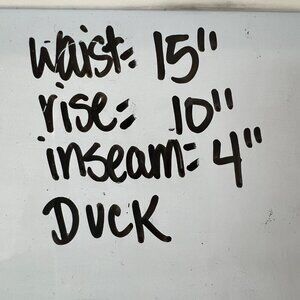 waist: 15"
rise: 10"
inseam: 4"
DUCK